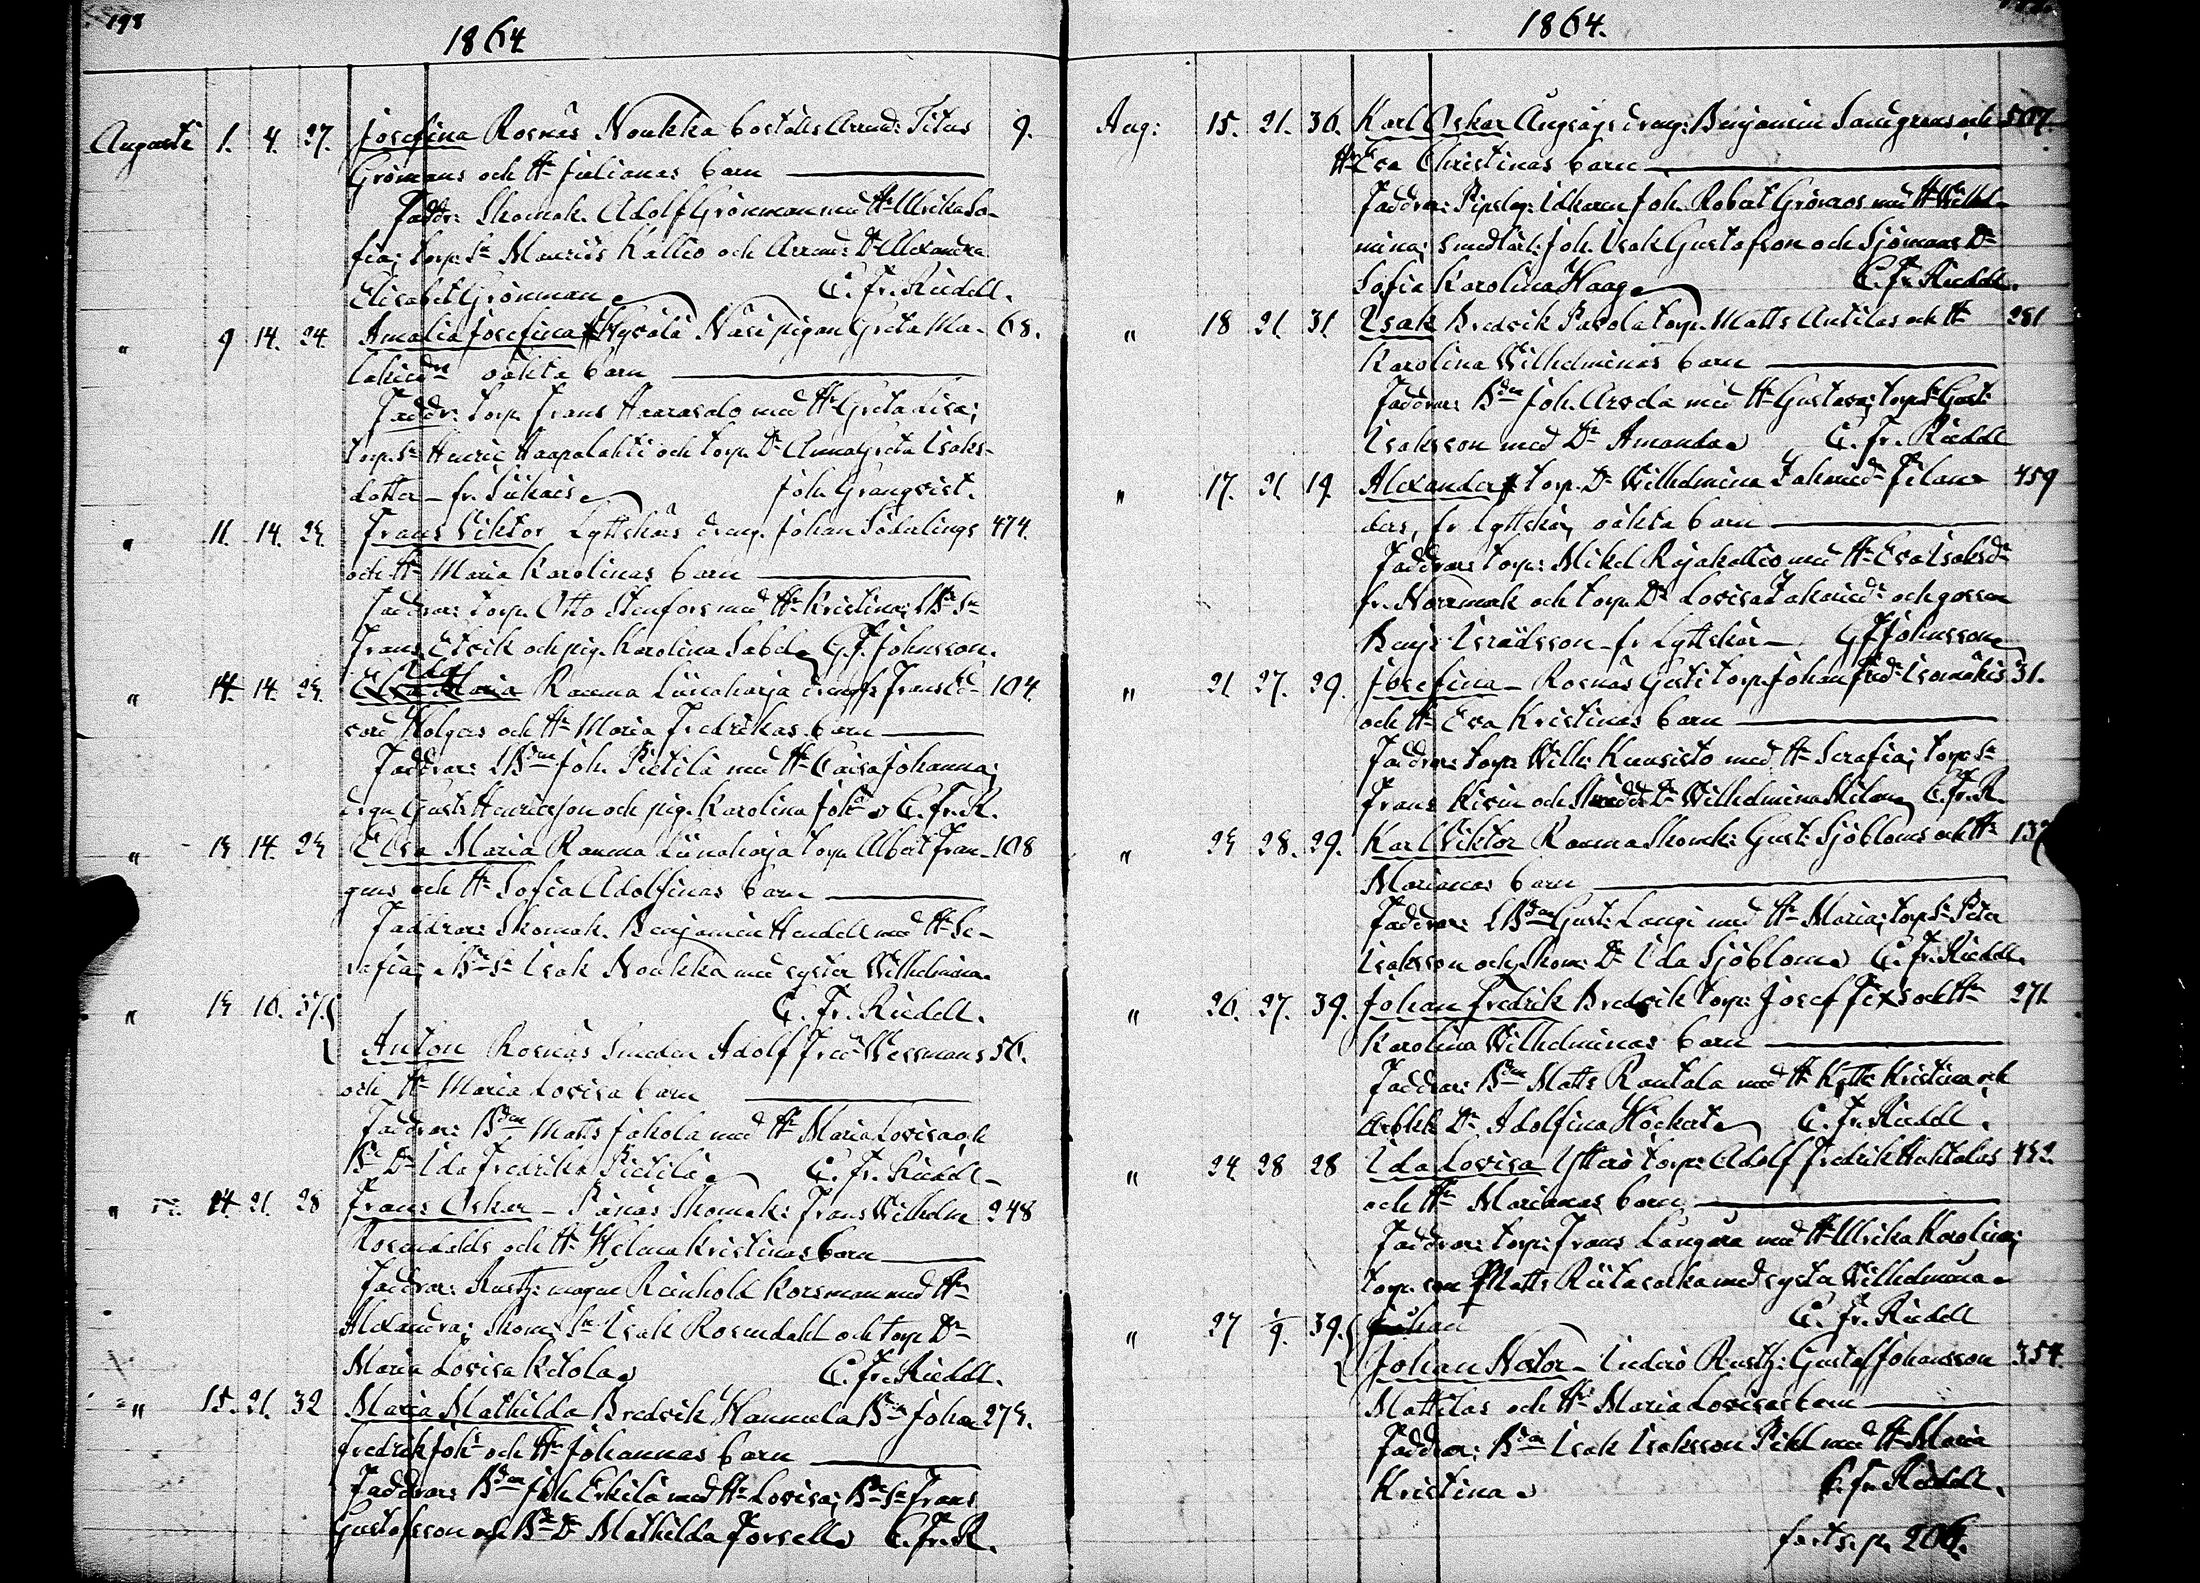 198
1864
Augusti 1. 4. 27. Josefina Rosnäs Noukka boställs Arrend: Titus 9.
Grönmans och Hu Julianas barn
Faddr: Skomak. Adolf Grönman med Hu Ulrika So-
fia; torp. Sn Maurits Kallio och Arrend: Dr Alexandra
Elisabet Grönman. C. Fr. Riedell.
" 9 14. 24. Amalia Josefina Hyvälä Näsi pigan Greta Ma- 68.
oäkta barn
Faddr: torp. Frans Haarasalo med Hu Greta Lisa;
torp. Sn Henric Haapalahti och torp. Dr Anna Greta Isaks-
dotter fr. Joh. Granqvist.
" 11. 14. 25. Frans Viktor Lyttskärs dreng. Johan Söderlings 474.
och Hu Maria Karolinas barn
Faddrar: torp. Otto Stenfors med Hu Kristina; Sn
Frans Elvik och pig. Karolina Sabel. G. F. Johnsson.
" 14. 14. 25. Ida Maria Rauma Liinaharja Frans Ed- 104.
vard Holgers och Hu Maria Fredrikas barn
Faddrar: Bdm Joh. Pietilä med Hu Caisa Johanna;
drgn Gust: Henricsson och pig. Karolina Johsd. C. Fr. R.
" 13 14. 25 Elsa Maria Rauma Liinaharja torp. Albert Fran- 108
gens och Hu Sofia Adolfinas barn
Faddrar: Skomak. Benjamin Hendell med Hu Se-
rafia; Bn Sn Isak Noukka med syster Wilhelmina.
C. Fr. Riedell.
" 13 16. 37.
Anton Rosnäs Smeden Adolf Fredr Wessmans 56.
och Hu Maria Lovisa barn
Faddrar: Bdm Matts Jakola med Hu Maria Lovisa och
Bn Dr Ida Fredrika Pietilä. C. Fr. Riedell.
" 14. 21. 28 Frans Oskar Pänäs Skomak: Frans Wilhelm 248
Rosendahls och Hu Wilma Kristinas barn
Faddrar: Rusth: mågen Reinhold Korsman med Hu
Alexandra; Skom: Sn Isak Rosendahl och torp. Dr
Maria Lovisa Ketola. C. Fr. Riedell.
" 15. 21. 32 Maria Mathilda Bredvik Hannula Bdn Johan 275.
Fredrik Johs och Hu Johannas barn
Faddrar: Bdm Joh. Erkilä med Hu Lovisa; Bn Sn Frans
Gustafsson och Bn Dr Mathilda Forsell. C. Fr. R.
1864.
Aug: 15. 21. 36. Karl Oskar Ångsågs dreng: Benjamin Sandgrens och 507.
Hu Eva Christinas barn
Faddrar: Joh. Robert Grönroos med Hu Wilhel-
mina; Smedlärl: Joh. Isak Gustafson och Sjömans Dr
Sofia Karolina Haag. C. Fr. Riedell.
" 18 21 31. Isak Bredvik Pavola torp. Matts Antilas och Hu 281
Karolina Wilhelminas barn
Faddrar: Bdm Joh. Arvela med Hu Gustava; torp. Sn Gust:
Isaksson med Dr Amanda. C. Fr. Riedell
" 17. 21 19. Alexander torp. Dr Wilhelmina Zakriedr Filan- 459
ders, fr. Lyttskär, oäkta barn
Faddrar: torp: Mikel Rajakallio med Hu Eva Isaksdr
fr. Norrmark och torp. Dr Lovisa Zakriedr och gossen
Benj: Israelsson fr. Lyttskär. G. F. Johnsson
" 21 27. 29. Josefina Rosnäs Gusti torp. Johan Fredr: Isomäkis 31.
och Hu Eva Kristinas barn
Faddrar: torp. Wilh: Kuusisto med Hu Serafia; torp. Sn
Frans Kivin och Skredd: Dr Wilhelmina Kilen. C. Fr. R.
" 25 28. 29. Karl Viktor Rauma Skomak: Gust: Sjöbloms och Hu 137
Marianas barn
Faddrar: Bdm Gust: Langi med Hu Maria; torp. Sn Peter
Isaksson och Skom: Dr Ida Sjöblom. C. Fr. Riedell.
" 26. 27. 39. Johan Fredrik Bredvik torp: Josef Fixs och Hu 271.
Karolina Wilhelminas barn
Faddrar: Bdm Matts Rantala med Hu Kristina och
Dr Adolfina Höckert. C. Fr. Riedell.
" 24. 28 28 Ida Lovisa Ytterö torp: Adolf Fredrik Huhtalas 432.
och Hu Marianas barn
Faddrar: torp: Frans Långåra med Hu Ulrika Karolina;
torp. son Matts Riitasalka med syster Wilhelmina.
C. Fr. Riedell
" 27 1/9. 39. Johan
Johan Nestor Inderö Rusth: Gustaf Johansson 354.
Mattilas och Hu Maria Lovisas barn
Faddrar: Bdm Isak Isaksson Pihl med Hu Maria
Kristina. C. Fr. Riedell.
forts. p. 206.